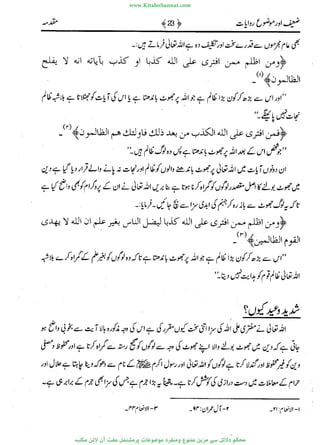 www.KitaboSunnat.com
ضعیف اور موضوع روایات ﴿ 23 ﴾ مقدمہ
بھی عام مجرموں سے قدرے سخت اور تکلیف دہ ہے اللہ تعالیٰ فرماتے ہیں:۔
﴿ومن اظلم ممن افترى على الله كذبا او كذب بآياته انه لا يفلح
الظالمون﴾(۱)۔
"اور اس سے بڑھ کر کون بڑا ظالم ہے جو اللہ پر جھوٹ باندھتا ہے یا اس کی آیات کو جھٹلاتا ہے بلاشبہ ظالم
نجات نہیں پائیں گے۔"
﴿فمن افترى على الله الكذب من بعد ذلك فاولئك هم الظالمون﴾(۲)۔
"جو شخص اس کے بعد اللہ پر جھوٹ باندھتا ہے پس وہ لوگ ظالم ہیں۔"
ان دونوں آیات میں اللہ تعالیٰ پر جھوٹ باندھنے والوں کو ظالم اور نجات نہ پانے والے قرار دیا گیا ہے دین
میں جھوٹ بولنے کا اصل مقصد لوگوں کو گمراہ کرنا ہوتا ہے بنا بریں اللہ تعالیٰ نے ان کے پروگرام کو بھی واضح کیا ہے
تاکہ لوگ جھوٹ سے باز رہ کر جہنم کی ابدی سزا سے بچ جائیں۔ فرمایا:۔
﴿ومن اظلم ممن افترى على الله كذبا ليضل الناس بغير علم ان الله لا يهدى
القوم الظالمين﴾(۳)۔
"اس سے بڑھ کر کون بڑا ظالم ہے جو اللہ پر جھوٹ باندھتا ہے تاکہ وہ لوگوں کو بغیر علم کے گمراہ کرے بلاشبہ
اللہ تعالیٰ ظالم قوم کو ہدایت نہیں دیتا۔"
شدید وعید کیوں؟
اللہ تعالیٰ نے مفتری علی اللہ کی سزا اتنی سخت کیوں مقرر کی ہے اس کی وجہ مذکورہ بالا آیت سے بخوبی واضح ہو
جاتی ہے کہ دین میں جھوٹ بولنے والا اپنے جھوٹ کی وجہ سے لوگوں کو صحیح رستہ سے گمراہ کرتا ہے اور محفوظ و مصفیٰ
دین کو غیر محفوظ اور گندلا کرتا ہے لوگوں کو اللہ تعالیٰ اور رسول اکرم ﷺ کے نام سے دھوکہ دینا چاہتا ہے حلال اور
حرام کے معاملات میں دست درازی کی کوشش کرتا ہے۔ یقیناً یہ بڑا جرم ہے جس کی سزا بھی جرم کے برابر ہی ہے۔
۱- الانعام: ۲۱۔ ۲- آل عمران: ۹۴۔ ۳- الانعام ۱۴۴۔
محکم دلائل سے مزین متنوع ومنفرد موضوعات پرمشتمل مفت آن لائن مکتبہ